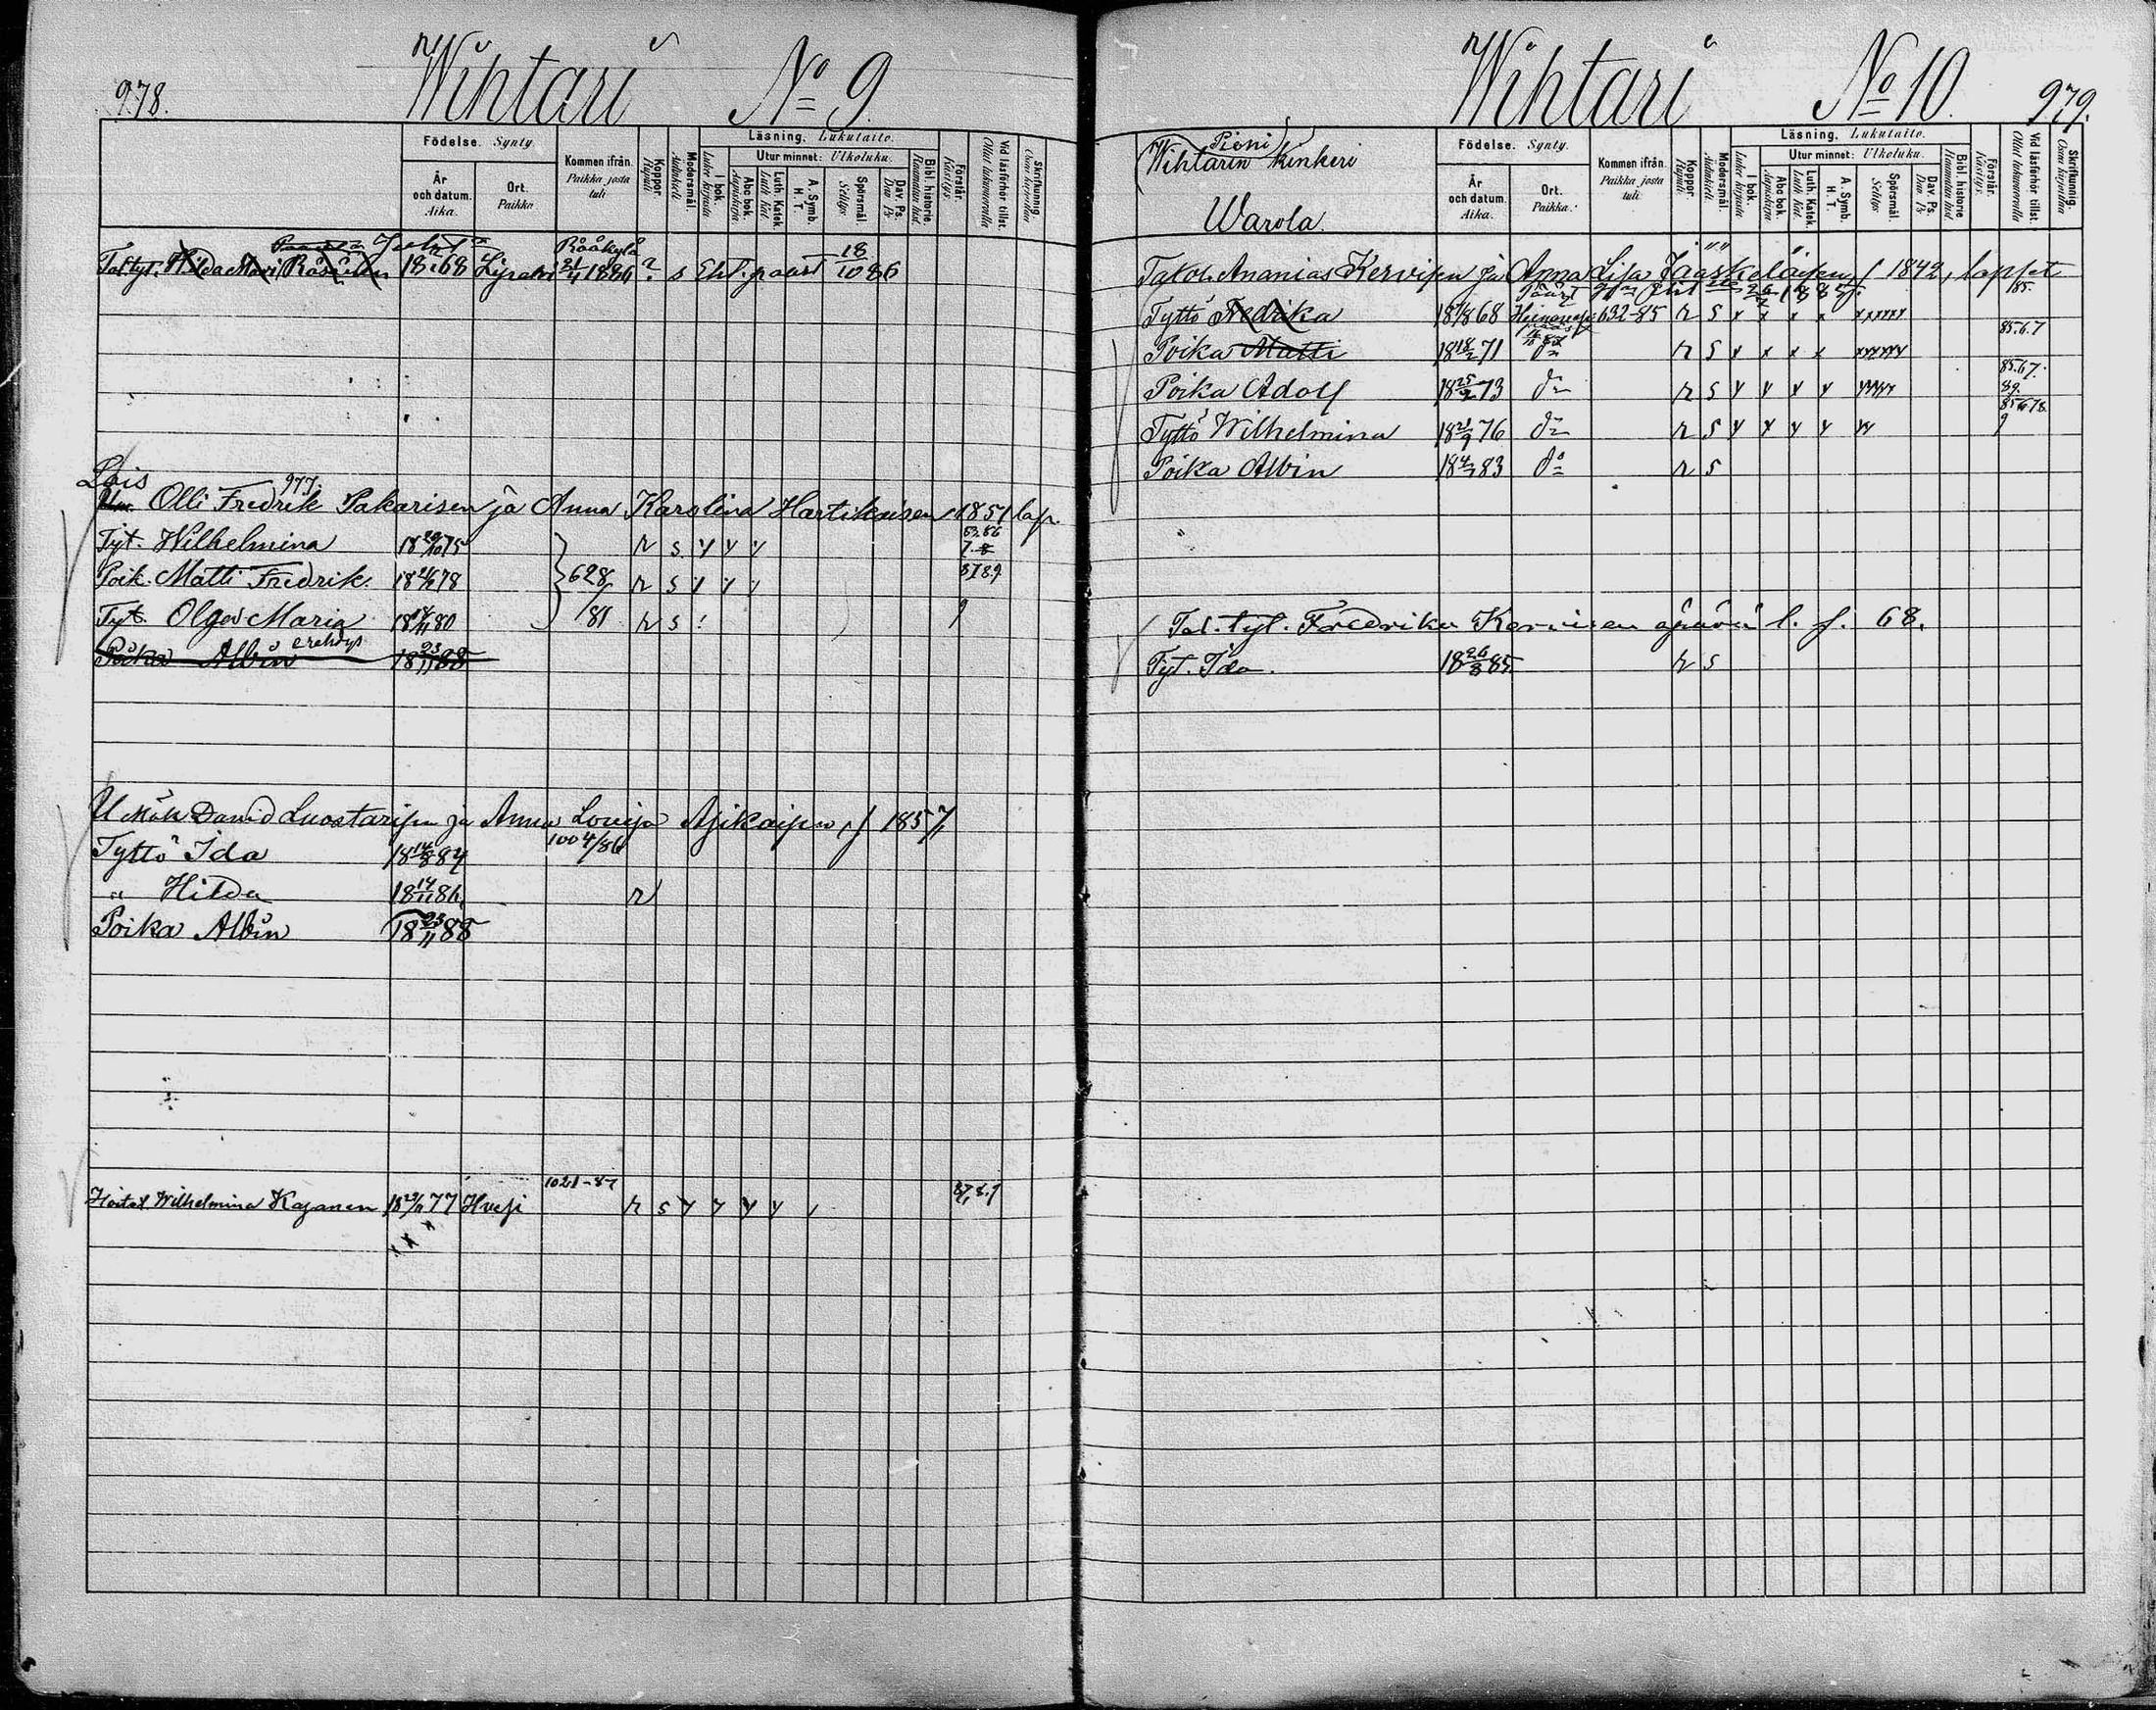 978.
Wihtari No 9.
Födelse. Synty.
Kommen ifrån. Paikka josta tuli
Koppor. Rupuli.
Modersmål. Äidinkieli
Läsning. Lukutaito.
I bok. Lukee kirjasta
Utur minnet: Ulkoluku.
Abc bok. Aapiskirja.
Luth. Katek. Luth. Kat.
A. Symb. H. T.
Spörsmål. Selitys
Dav. Ps. Dav. Ps.
Bibl. historie. Raamatun hist.
Förstår. Käsitys.
Vid läsförhör tillst. Ollut lukuvuoralla
Skrifkunnig. Osaa kirjoittaa
År och datum. Aika.
Ort. Paikka
Rääkylä
Tal tyt. Hilda Mari Räsänen 18 68 Liperi 1886 ? s 18/10 86
Lois 977.
Olli Fredrik Pakarisen ja Anna Karolina Hartikaisen 1851 lap.
Tyt. Wilhelmina 18 29/10 75 r s y y y
Poik. Matti Fredrik. 18 78 628/81 r s 87 8.9
Tyt. Olga Maria 18 14/11 80 r s 9
Poika Albin erehdys 18 23/11 88
David Luostarisen ja Anna Lovisa Asikaisen, s 1857,
Tyttö Ida 18 14/8 84 1004/86
" Hilda 18 14/11 86 r
Poika Albin 18 23/11 88
1021-87
Hoitol Wilhelmina Kajanen 18 77 r s y y y y 87,8.9
Wihtari No 10. 979.
Pieni
Wihtarin Kinkeri
Warola.
Födelse. Synty.
Kommen ifrån. Paikka josta tuli
Koppor. Rupuli.
Modersmål. Äidinkieli.
Läsning. Lukutaito.
I bok. Lukee kirjasta
Utur minnet: Ulkoluku.
Abc bok. Aapiskirja
Luth. Katek. Luth. Kat.
A. Symb. H. T.
Spörsmål. Selitys
Dav. Ps. Dav. Ps
Bibl. historie Raamatun hist
Förstår. Käsitys.
Vid läsförhör tillst. Ollut lukuvuoralla
Skrifkunnig. Osaa kirjoittaa
År och datum. Aika.
Ort. Paikka.
Talol. Ananias Kervisen ja Anna Lisa Jääskeläisen s 1842, lapset
Tyttö Fredrika 18 68 632-85 r s x x x x xxxxx 85.
Poika Matti 18 18/2 71 do r s x x x x xxxxxx 85.6.7
Poika Adolf 18 25/9 73 do r s y y y y 85.6.7. 89.
Tyttö Wilhelmina 18 21/9 76 do r s y y y y 85 6 7 8. 9
Poika Albin 18 4/7 83 do r s
Tal. tyt. Fredrika Kervisen äpärä l. s. 68.
Tyt. Ida. 18 26/8 85 r s